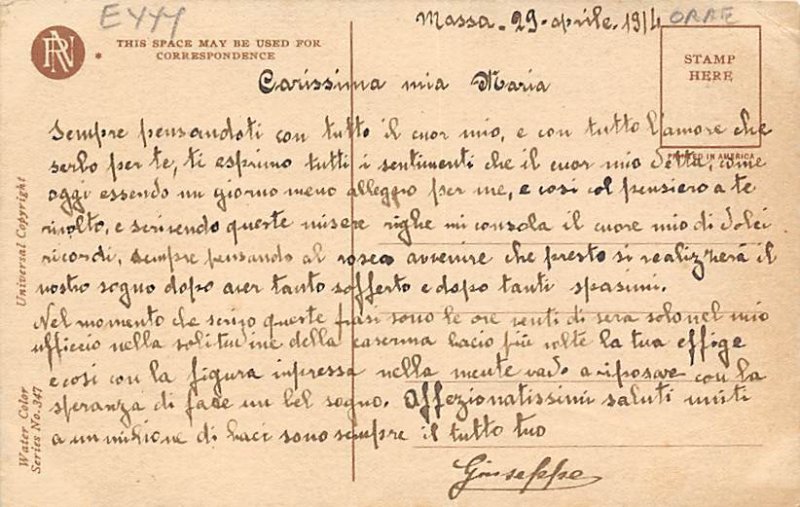 EYYY
ORRE
Massa - 29 - aprile - 1914
THIS SPACE MAY BE USED FOR
CORRESPONDENCE
STAMP
HERE
PRINTED IN AMERICA
Carissima mia Maria
Sempre pensandoti con tutto il cuor mio, e con tutto l'amore che
serbo per te, ti esprimo tutti i sentimenti che il cuor mio detta, come
oggi essendo un giorno meno alleggio per me, e così col pensiero a te
rivolto, e scrivendo queste misere righe mi consola il cuore mio di dolci
ricordi, sempre pensando al roseo avvenire che presto si realizzerá il
nostro sogno dopo aver tanto sofferto e dopo tanti spasimi.
Nel momento che scrivo queste frasi sono le ore venti di sera solo nel mio
ufficcio nella solitudine della caserma bacio più volte la tua effige
e così con la figura inpressa nella mente vado a riposare con la
speranza di fare un bel sogno. Affezionatissimi saluti uniti
a un milione di baci sono sempre il tutto tuo
Giuseppe
Universal Copyright
Water Color
Series No. 347